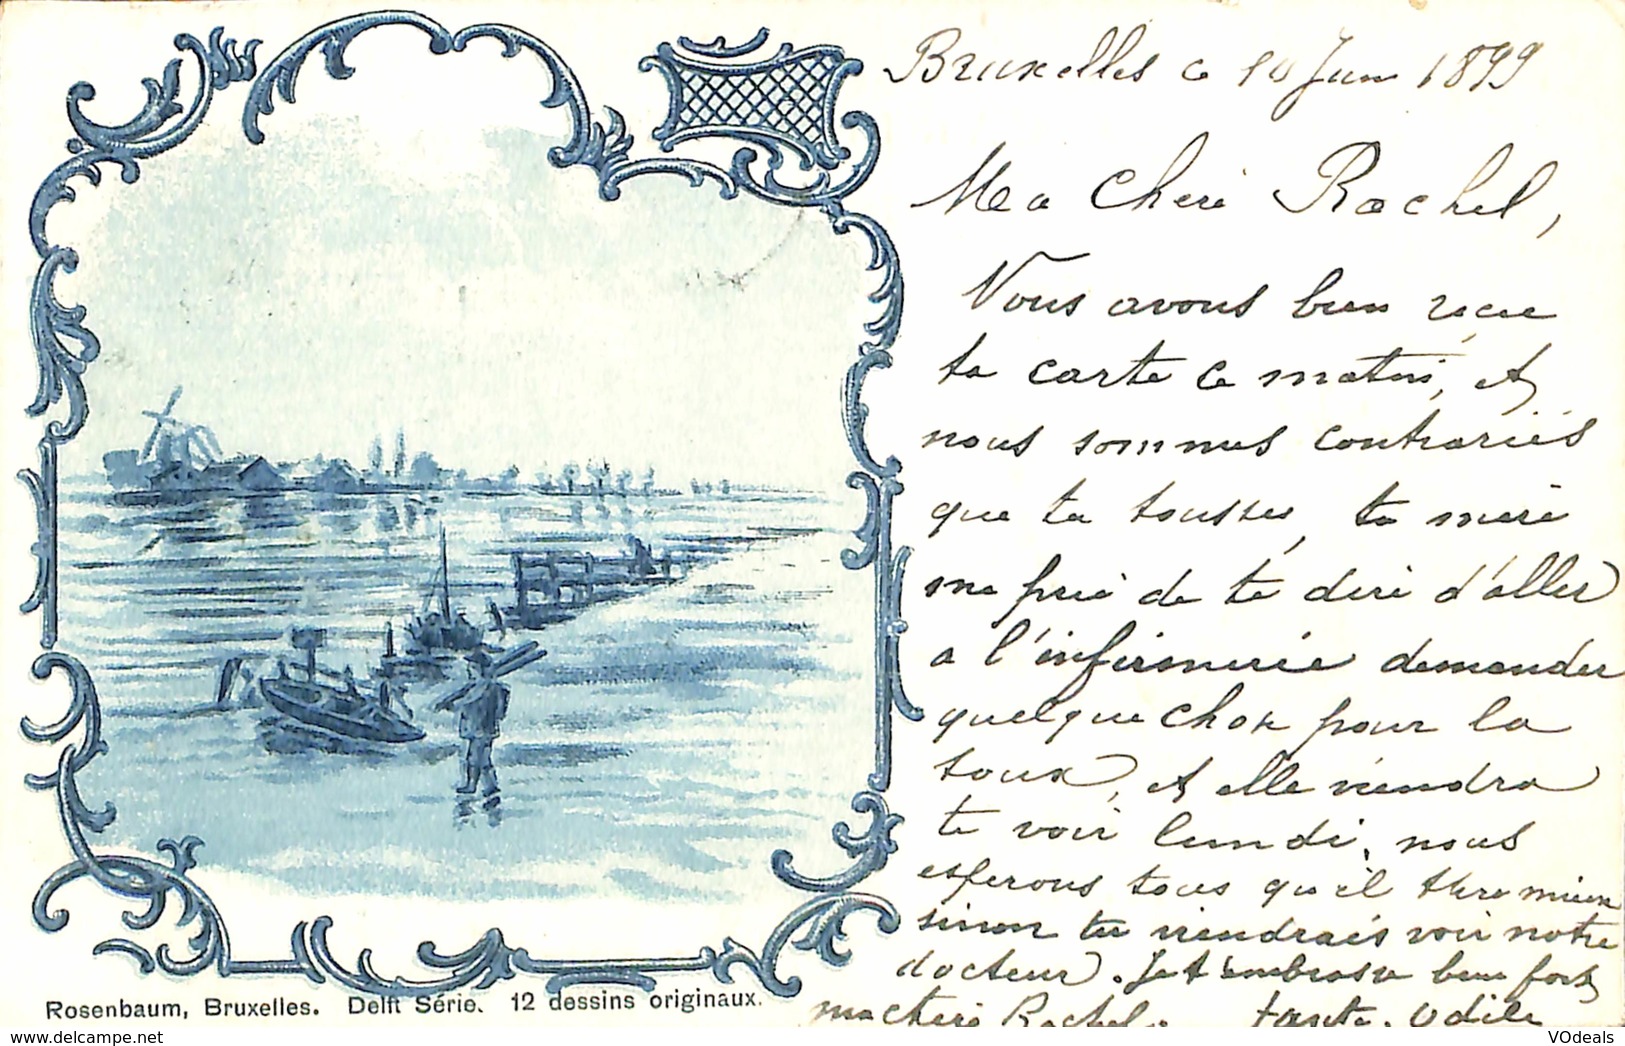 Bruxelles ce 10 Juin 1899
Ma Cheri Rachel,
Nous avons bien reçue
ta carte ce matin, et
nous sommes contrariés
que tu tousses, ta mère
me prie de te dire d'aller
a l'infirmerie demander
quelque chose pour la
toux, et elle viendra
te voir lundi, nous
esperons tous qu'il sera mieux
sinon tu viendrais voir notre
docteur. Je t'embrasse bien fort
ma cheri Rachel. tante. Odile
Rosenbaum, Bruxelles. Delft Série. 12 dessins originaux.
VOdeals